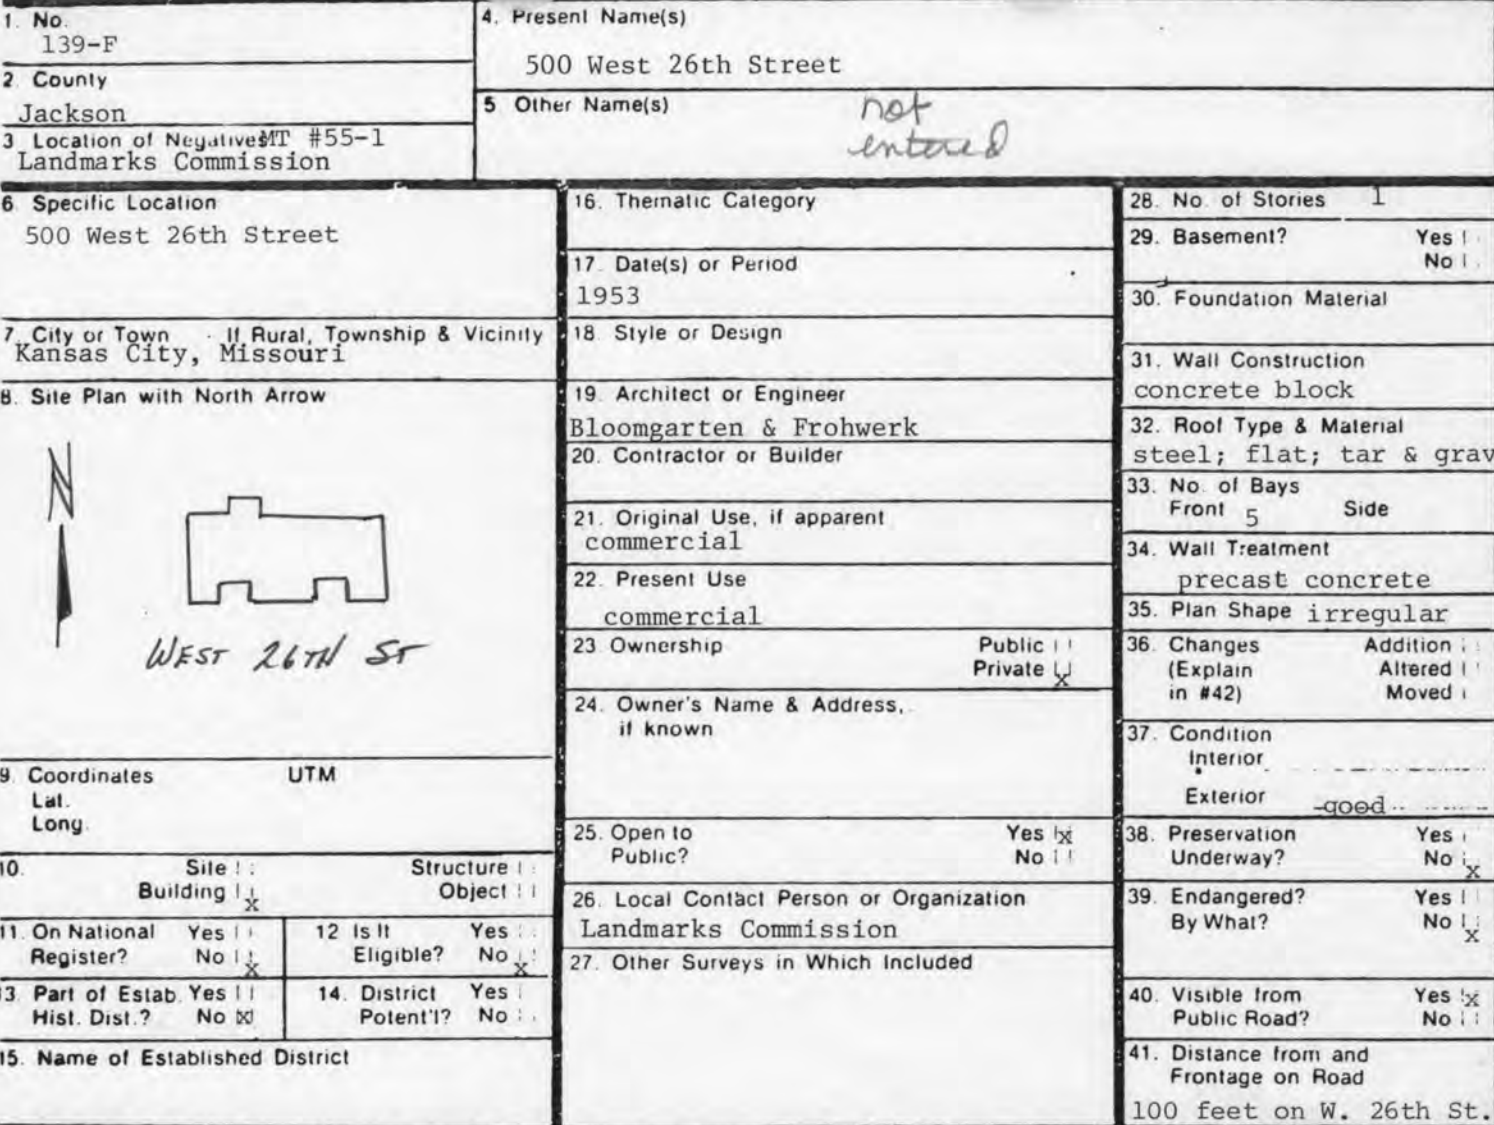 1. No.
139-F
2. County
Jackson
3 Location of Negatives MT #55-1
Landmarks Commission
4. Present Name(s)
500 West 26th Street
5 Other Name(s)
not
entered
6. Specific Location
500 West 26th Street
7. City or Town If Rural, Township & Vicinity
Kansas City, Missouri
8. Site Plan with North Arrow
N
WEST 26TH ST
9. Coordinates UTM
Lat.
Long.
10. Site Structure
Building x Object
11. On National Yes
Register? No x
12 Is It Yes
Eligible? No x
13. Part of Estab. Yes
Hist. Dist.? No x
14. District Yes
Potent'l? No
15. Name of Established District
16. Thematic Category
17. Date(s) or Period
1953
18. Style or Design
19. Architect or Engineer
Bloomgarten & Frohwerk
20. Contractor or Builder
21. Original Use, if apparent
commercial
22. Present Use
commercial
23 Ownership Public
Private x
24. Owner's Name & Address,
if known
25. Open to Yes x
Public? No
26. Local Contact Person or Organization
Landmarks Commission
27. Other Surveys in Which Included
28. No. of Stories 1
29. Basement? Yes
No
30. Foundation Material
31. Wall Construction
concrete block
32. Roof Type & Material
steel; flat; tar & grav
33. No. of Bays
Front 5 Side
34. Wall Treatment
precast concrete
35. Plan Shape irregular
36. Changes Addition
(Explain Altered
in #42) Moved
37. Condition
Interior
Exterior good
38. Preservation Yes
Underway? No x
39. Endangered? Yes
By What? No x
40. Visible from Yes x
Public Road? No
41. Distance from and
Frontage on Road
100 feet on W. 26th St.